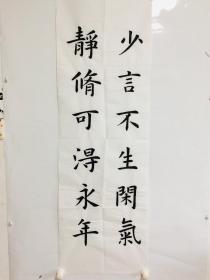 少言不生閑氣
靜脩可淂永年